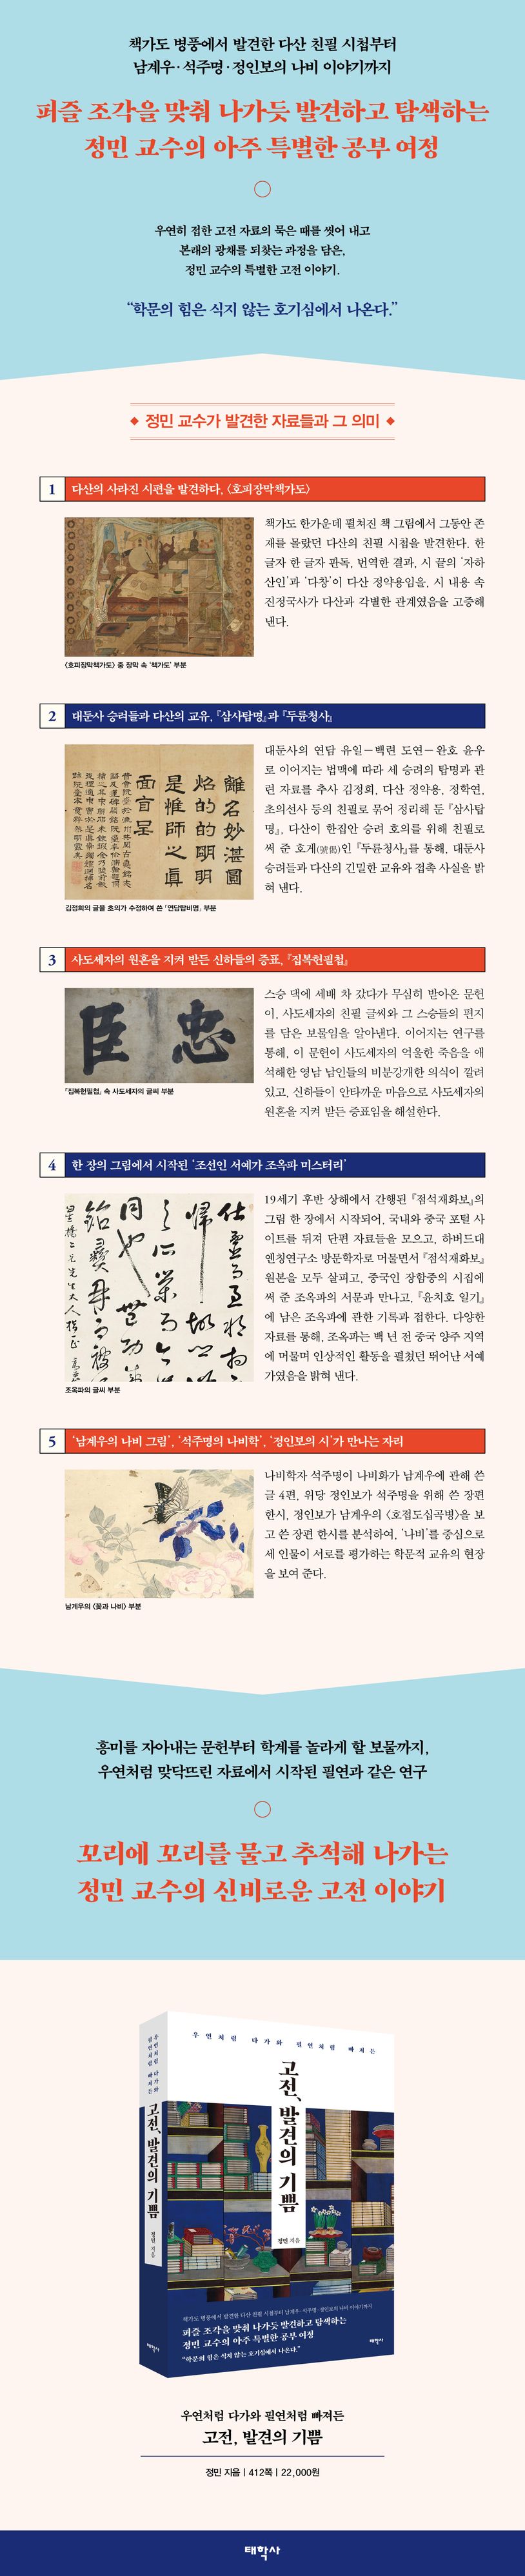 책가도 병풍에서 발견한 다산 친필 시첩부터
남계우·석주명·정인보의 나비 이야기까지
퍼즐 조각을 맞춰 나가듯 발견하고 탐색하는
정민 교수의 아주 특별한 공부 여정
우연히 접한 고전 자료의 묵은 때를 씻어 내고
본래의 광채를 되찾는 과정을 담은,
정민 교수의 특별한 고전 이야기.
“학문의 힘은 식지 않는 호기심에서 나온다.”
◆ 정민 교수가 발견한 자료들과 그 의미 ◆
1 다산의 사라진 시편을 발견하다, 〈호피장막책가도〉
책가도 한가운데 펼쳐진 책 그림에서 그동안 존
재를 몰랐던 다산의 친필 시첩을 발견한다. 한
글자 한 글자 판독, 번역한 결과, 시 끝의 ‘자하
산인’과 ‘다창’이 다산 정약용임을, 시 내용 속
진정국사가 다산과 각별한 관계였음을 고증해
낸다.
〈호피장막책가도〉 중 장막 속 ‘책가도’ 부분
2 대둔사 승려들과 다산의 교유, 『삼사탑명』과 『두륜청사』
대둔사의 연담 유일－백련 도연－완호 윤우
로 이어지는 법맥에 따라 세 승려의 탑명과 관
련 자료를 추사 김정희, 다산 정약용, 정학연,
초의선사 등의 친필로 묶어 정리해 둔 『삼사탑
명』, 다산이 한집안 승려 호의를 위해 친필로
써 준 호게(號偈)인 『두륜청사』를 통해, 대둔사
승려들과 다산의 긴밀한 교유와 접촉 사실을 밝
혀 낸다.
離名妙湛圓
焰的的明明
是惟師之眞
面盲杲
김정희의 글을 초의가 수정하여 쓴 「연담탑비명」 부분
3 사도세자의 원혼을 지켜 받든 신하들의 증표, 『집복헌필첩』
스승 댁에 세배 차 갔다가 무심히 받아온 문헌
이, 사도세자의 친필 글씨와 그 스승들의 편지
를 담은 보물임을 알아낸다. 이어지는 연구를
통해, 이 문헌이 사도세자의 억울한 죽음을 애
석해한 영남 남인들의 비분강개한 의식이 깔려
있고, 신하들이 안타까운 마음으로 사도세자의
원혼을 지켜 받든 증표임을 해설한다.
忠臣
『집복헌필첩』 속 사도세자의 글씨 부분
4 한 장의 그림에서 시작된 ‘조선인 서예가 조옥파 미스터리’
19세기 후반 상해에서 간행된 『점석재화보』의
그림 한 장에서 시작되어, 국내와 중국 포털 사
이트를 뒤져 단편 자료들을 모으고, 하버드대
옌칭연구소 방문학자로 머물면서 『점석재화보』
원본을 모두 살피고, 중국인 장함중의 시집에
써 준 조옥파의 서문과 만나고, 『윤치호 일기』
에 남은 조옥파에 관한 기록과 접한다. 다양한
자료를 통해, 조옥파는 백 년 전 중국 양주 지역
에 머물며 인상적인 활동을 펼쳤던 뛰어난 서예
가였음을 밝혀 낸다.
조옥파의 글씨 부분
5 ‘남계우의 나비 그림’, ‘석주명의 나비학’, ‘정인보의 시’가 만나는 자리
나비학자 석주명이 나비화가 남계우에 관해 쓴
글 4편, 위당 정인보가 석주명을 위해 쓴 장편
한시, 정인보가 남계우의 〈호접도십곡병〉을 보
고 쓴 장편 한시를 분석하여, ‘나비’를 중심으로
세 인물이 서로를 평가하는 학문적 교유의 현장
을 보여 준다.
남계우의 〈꽃과 나비〉 부분
흥미를 자아내는 문헌부터 학계를 놀라게 할 보물까지,
우연처럼 맞닥뜨린 자료에서 시작된 필연과 같은 연구
꼬리에 꼬리를 물고 추적해 나가는
정민 교수의 신비로운 고전 이야기
우연처럼 다가와 필연처럼 빠져든
고전, 발견의 기쁨
정민 지음
태학사
우연처럼 다가와 필연처럼 빠져든
고전, 발견의 기쁨
정민 지음
책가도 병풍에서 발견한 다산 친필 시첩부터 남계우·석주명·정인보의 나비 이야기까지
퍼즐 조각을 맞춰 나가듯 발견하고 탐색하는
정민 교수의 아주 특별한 공부 여정
“학문의 힘은 식지 않는 호기심에서 나온다.”
태학사
우연처럼 다가와 필연처럼 빠져든
고전, 발견의 기쁨
정민 지음 | 412쪽 | 22,000원
태학사